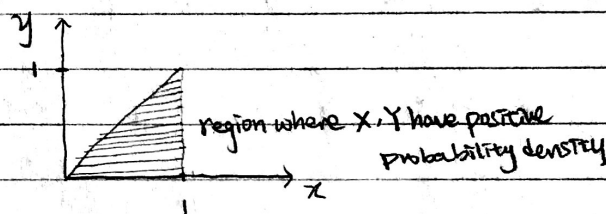 y
1
region where X, Y have positive
probability density
x
1